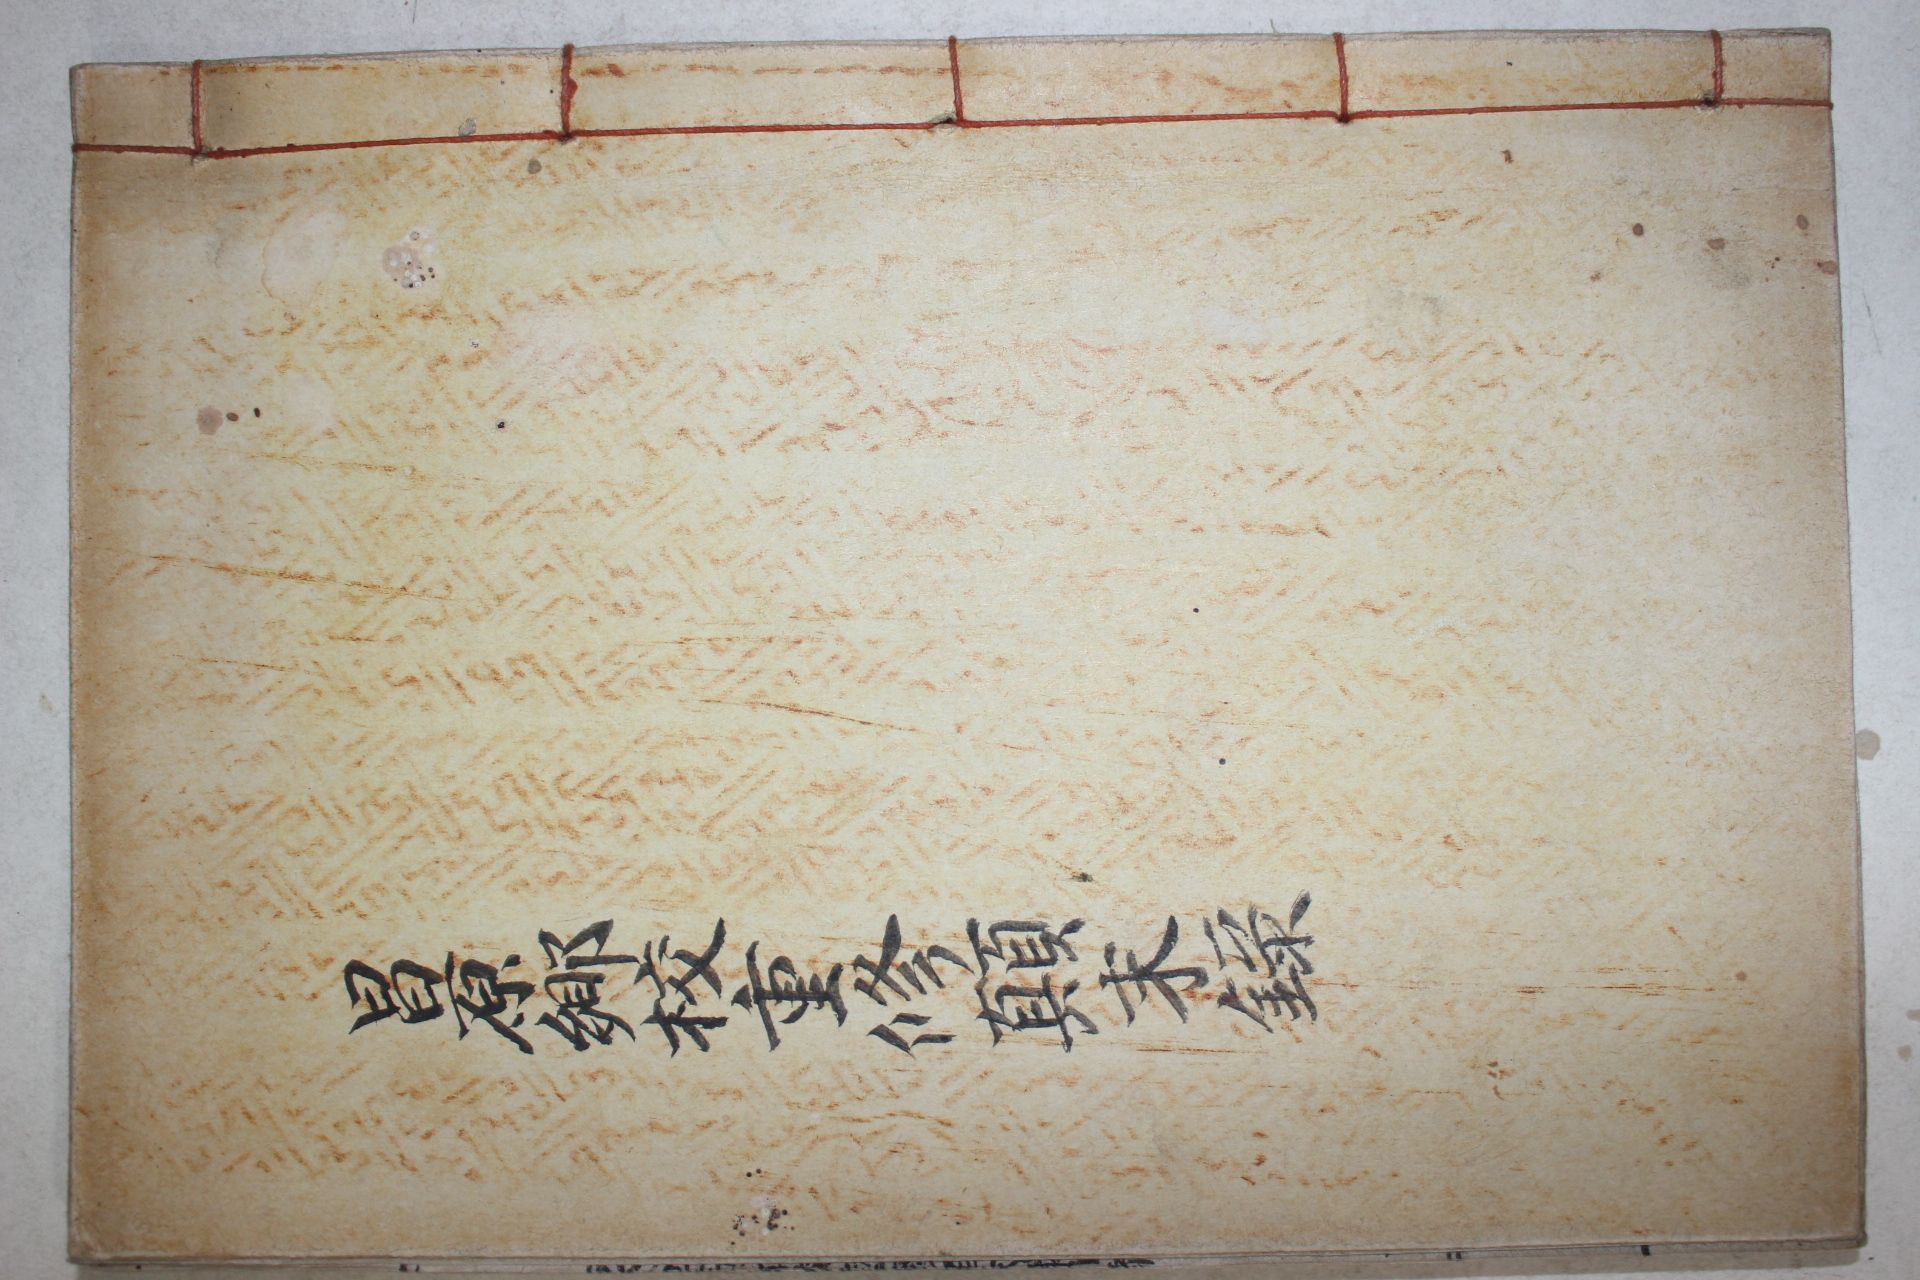 昌原鄕校重修顚末錄